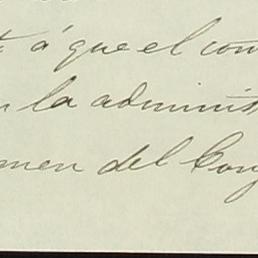 á que el com
la adminis
men del Cong